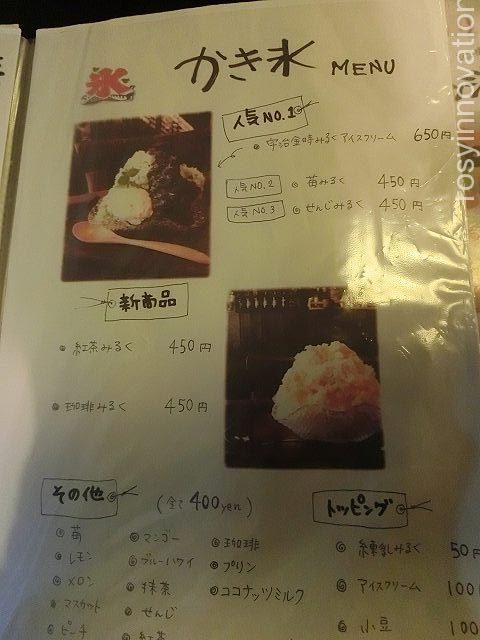 氷
かき氷 MENU
人気NO.1
宇治金時みるくアイスクリーム 650円
人気NO.2 苺みるく 450円
人気NO.3 せんじみるく 450円
新商品
紅茶みるく 450円
珈琲みるく 450円
その他 (全て400yen)
苺
レモン
メロン
マスカット
ピーチ
マンゴー
ブルーハワイ
抹茶
せんじ
紅茶
珈琲
プリン
ココナッツミルク
トッピング
練乳みるく 50円
アイスクリーム 100
小豆 100
rosyinnovation